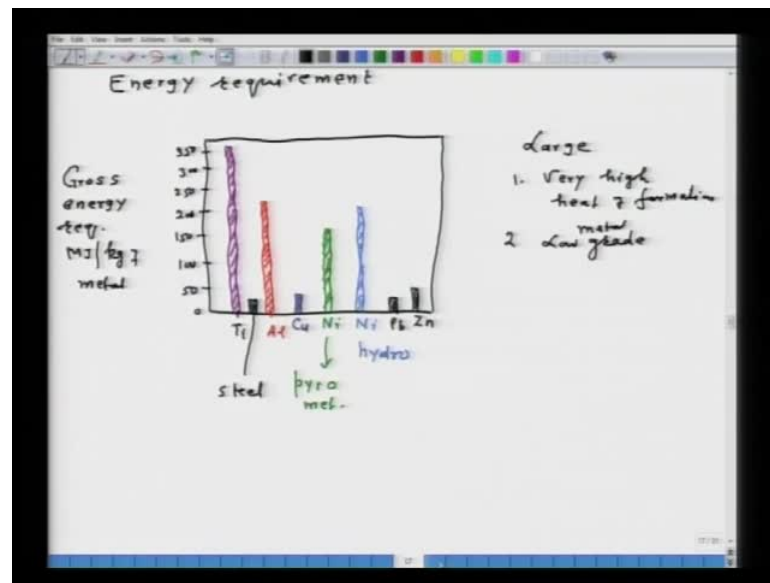 File Edit View Insert Actions Tools Help
Energy requirement
Gross
energy
req.
MJ/kg of
metal
350
300
250
200
150
100
50
0
Ti
Al
Cu
Ni
Ni
Pb
Zn
steel
pyro
met.
hydro
Large
1. Very high
heat of formation
2 Low metal grade
17